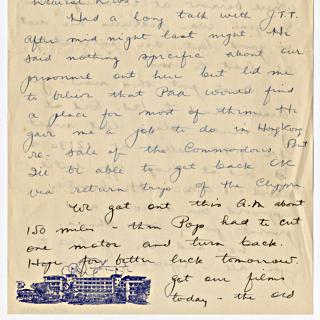 Had a long talk with J.T.T.
after mid night last night. He
said nothing specific about our
personnel out her but led me
to beleive that Paa would find
a place for most of them. He
gave me a job to do in HongKong
re- sale of the Commodores. But
I'll be able to get back OK
via return trip of the Clipper.
We got out this A.M about
150 miles - then Pop had to cut
one motor and turn back.
Hope for better luck tomorrow.
got our films
today - the old